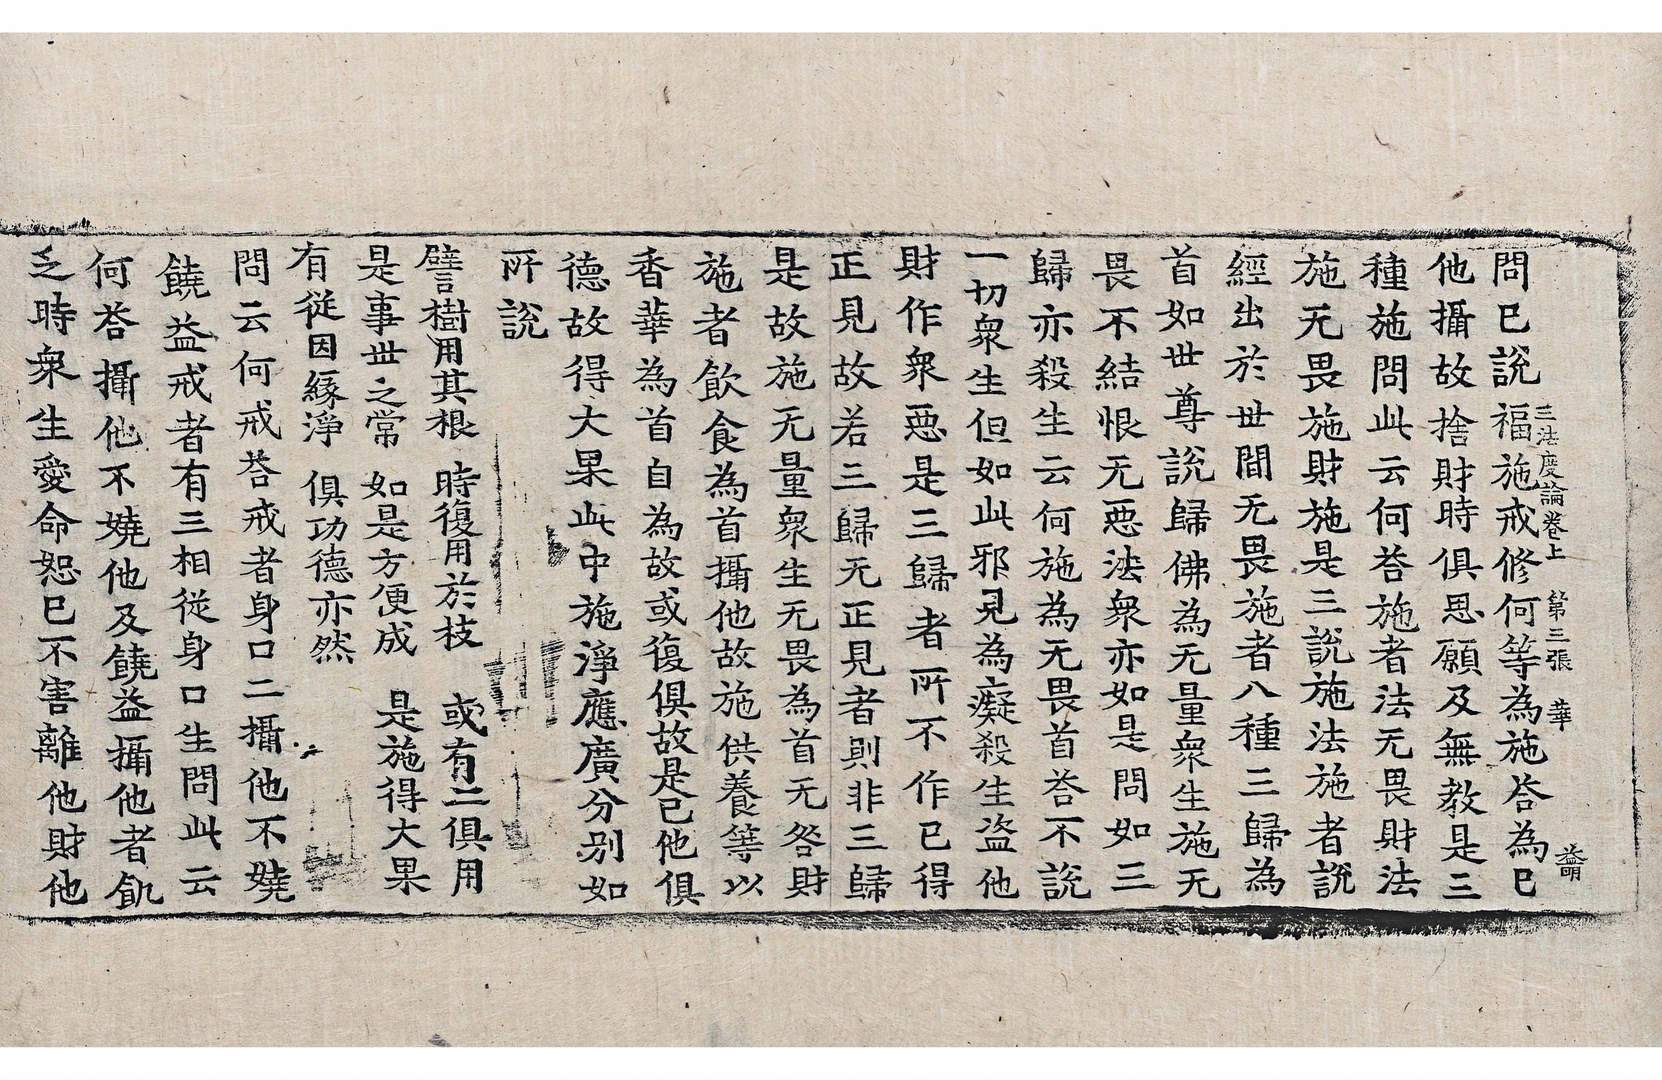 三法度論卷上 第三張 華
問已說福施戒修何等為施荅為已
他攝故捨財時俱思願及無教是三
種施問此云何荅施者法无畏財法
施无畏施財施是三說施法施者說
經出於世間无畏施者八種三歸為
首如世尊說歸佛為无量衆生施无
畏不結恨无惡法衆亦如是問如三
歸亦殺生云何施為无畏首荅不說
一切衆生但如此邪見為癡殺生盜他
財作衆惡是三歸者所不作已得
正見故若三歸无正見者則非三歸
是故施无量衆生无畏為首无咎財
施者飲食為首攝他故施供養等以
香華為首自為故或復俱故是已他俱
德故得大果此中施淨應廣分别如
所說
譬樹用其根 時復用於枝 或有二俱用
是事世之常 如是方便成 是施得大果
有從因緣淨 俱功德亦然
問云何戒荅戒者身口二攝他不嬈
饒益戒者有三相從身口生問此云
何荅攝他不嬈他及饒益攝他者飢
乏時衆生愛命恕已不害離他財他